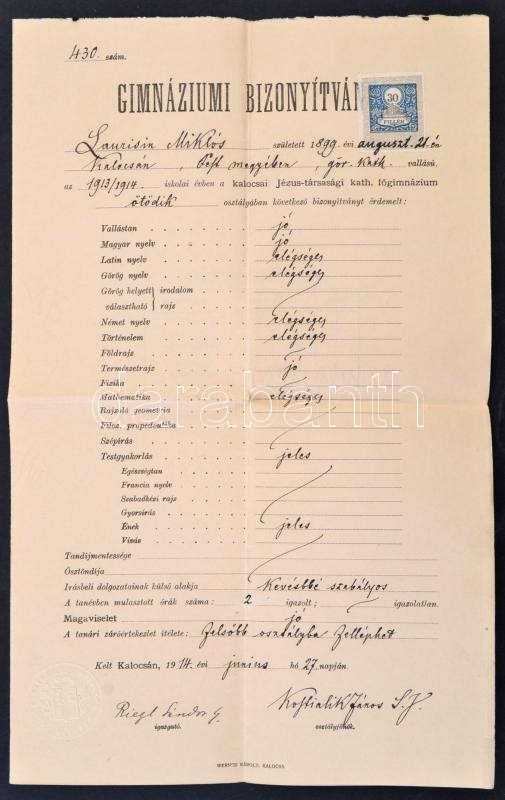 430. szám.
GIMNÁZIUMI BIZONYÍTVÁN
30
FILLÉR
Laurisin Miklós született 1899. évi auguszt. 21-én
Kalocsán, Pest megyében, gör. kath. vallású
az 1913/1914. iskolai évben a kalocsai Jézus-társasági kath. főgimnázium
ötödik osztályában következő bizonyítványt érdemelt:
Vallástan jó
Magyar nyelv jó
Latin nyelv elégséges
Görög nyelv elégséges
Görög helyett irodalom
választható rajz
Német nyelv elégséges
Történelem elégséges
Földrajz
Természetrajz jó
Fizika
Mathematika elégséges
Rajzoló geometria
Filoz. propedeutika
Szépírás
Testgyakorlás jeles
Egészségtan
Francia nyelv
Szabadkézi rajz
Gyorsírás
Ének jeles
Vívás
Tandíjmentessége
Ösztöndíja
Írásbeli dolgozatainak külső alakja Kevésbbé szabályos
A tanévben mulasztott órák száma: 2 igazolt; igazolatlan.
Magaviselet jó
A tanári záróértekezlet ítélete: Felsőbb osztályba felléphet
Kelt Kalocsán, 1914. évi junius hó 27. napján.
Riegl Sándor
igazgató.
János S. J.
osztályfőnök.
WERNER KÁROLY, KALOCSA
darabanth